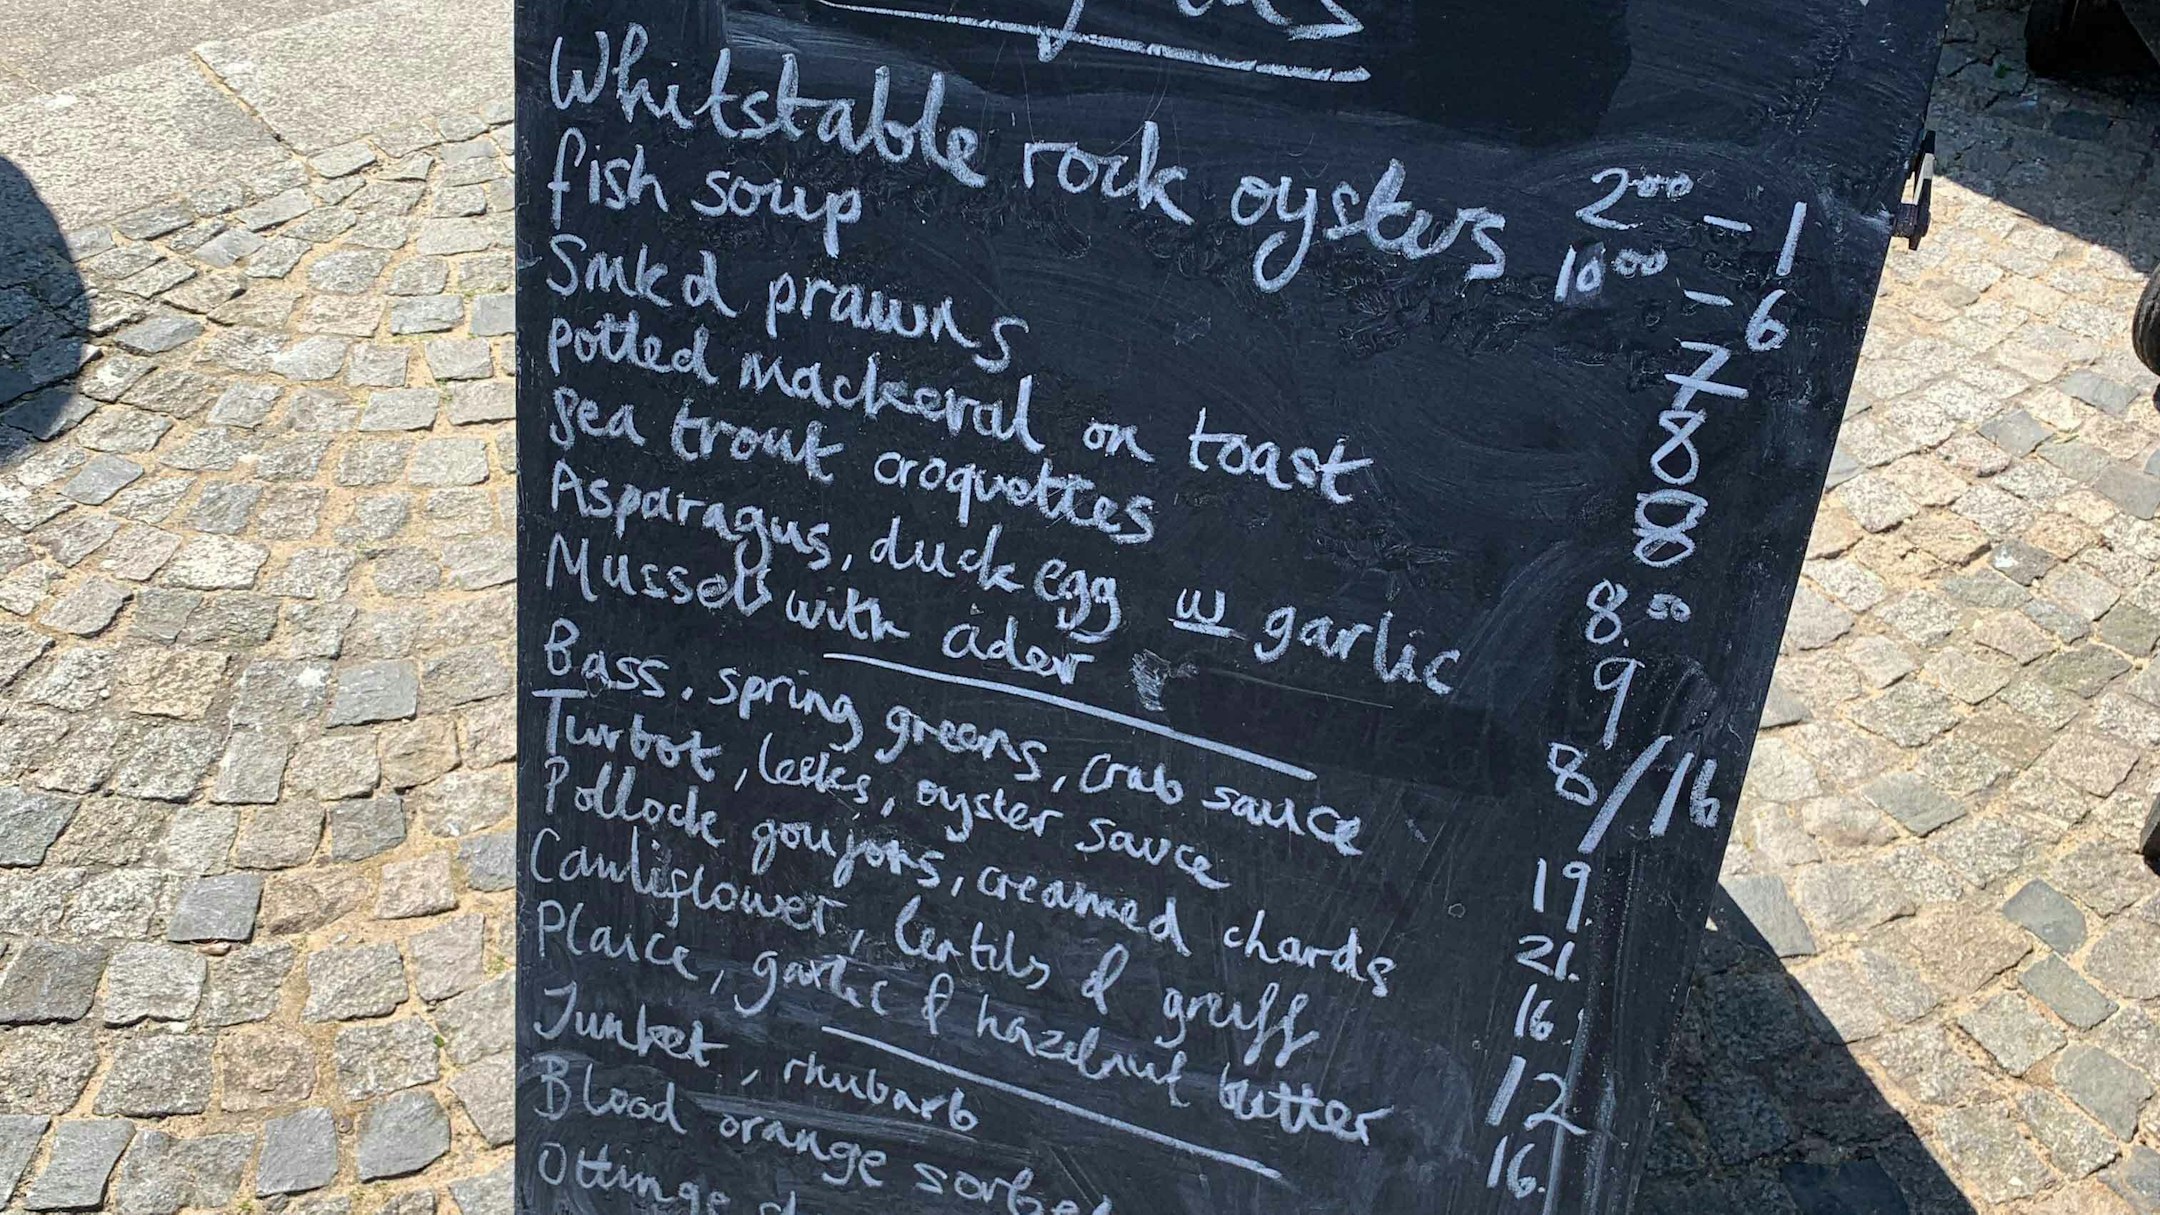 Whitstable rock oysters 2.00 - 1
fish soup 10.00 - 6
Smkd prawns 7
potted mackeral on toast 8
Sea trout croquettes 8
Asparagus, duck egg w garlic 8.50
Mussels with cider 9
8/16
Bass, spring greens, crab sauce 19.
Turbot, leeks, oyster sauce 21.
Pollock goujons, creamed chards 16.
Cauliflower, lentils & gruff 12
Plaice, garlic & hazelnut butter 16.
Junket, rhubarb
Blood orange sorbe
Ottinge